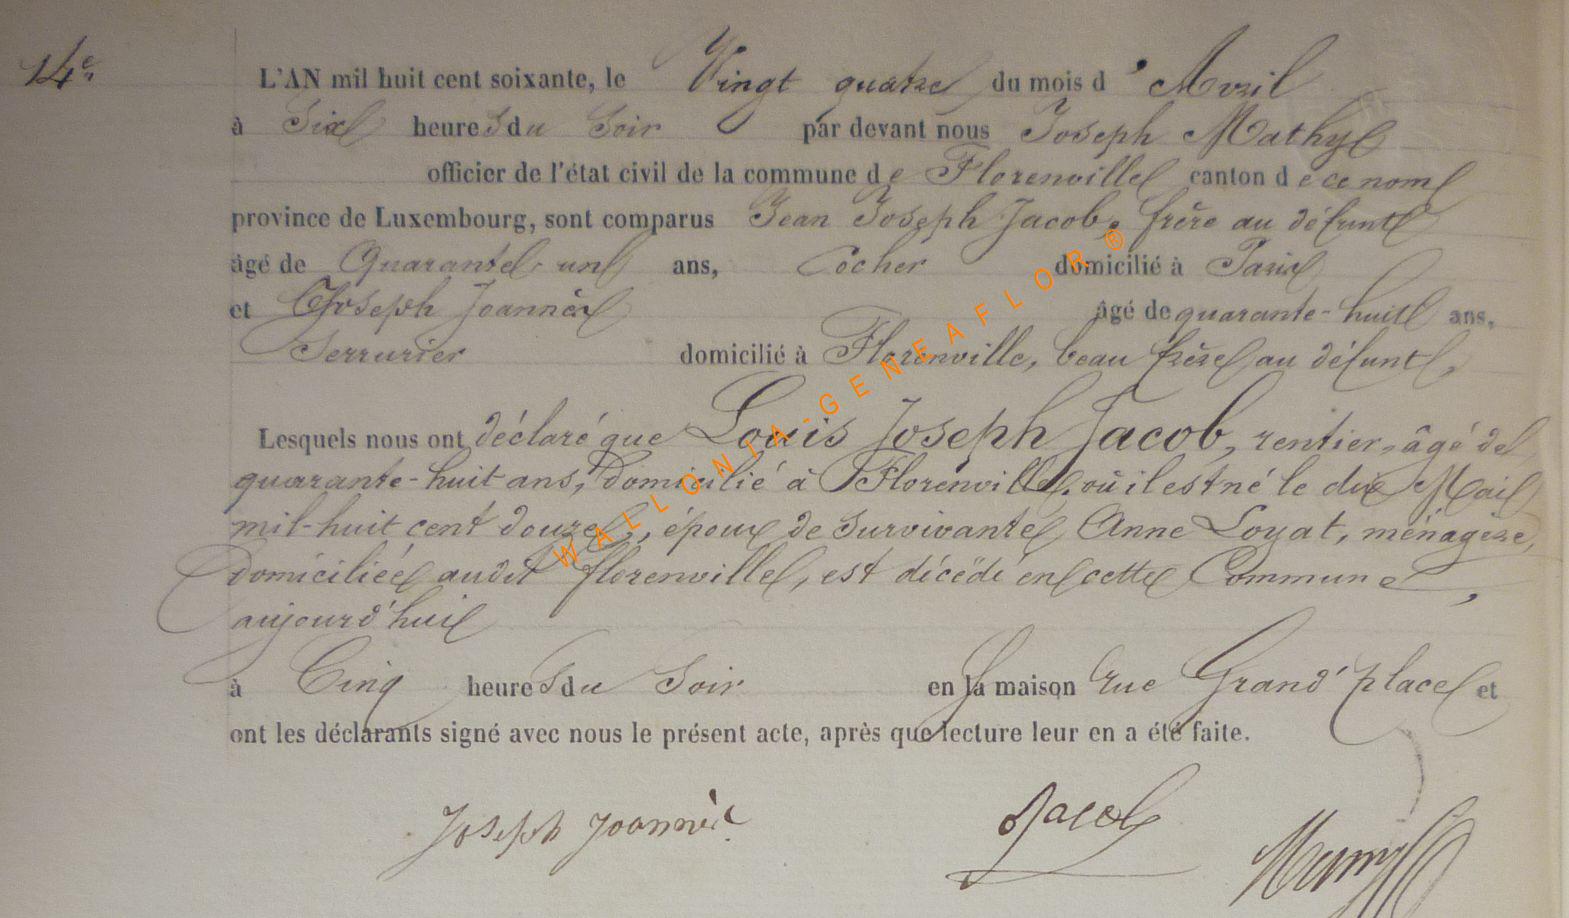 14e
L'AN mil huit cent soixante, le Vingt quatre du mois d'Avril
à Six heures du Soir par devant nous Joseph Mathy
officier de l'état civil de la commune de Florenville canton de ce nom
province de Luxembourg, sont comparus Jean Joseph Jacob, frère au défunt
âgé de Quarante-un ans, Cocher domicilié à Paris
et Joseph Joannès âgé de quarante-huit ans,
Serrurier domicilié à Florenville, beau frère au défunt,
Lesquels nous ont déclaré que Louis Joseph Jacob, rentier, âgé de
quarante-huit ans, Domicilié à Florenville, où il est né le dix Mai
mil-huit cent douze, époux de Survivante Anne Loyat, ménagère,
Domiciliée audit florenville, est décédé en cette Commune,
aujourd'hui
à Cinq heures du Soir en la maison rue Grand'place et
ont les déclarants signé avec nous le présent acte, après que lecture leur en a été faite.
Joseph Joannès Jacob
WALLONIA-GENEAFLOR ®